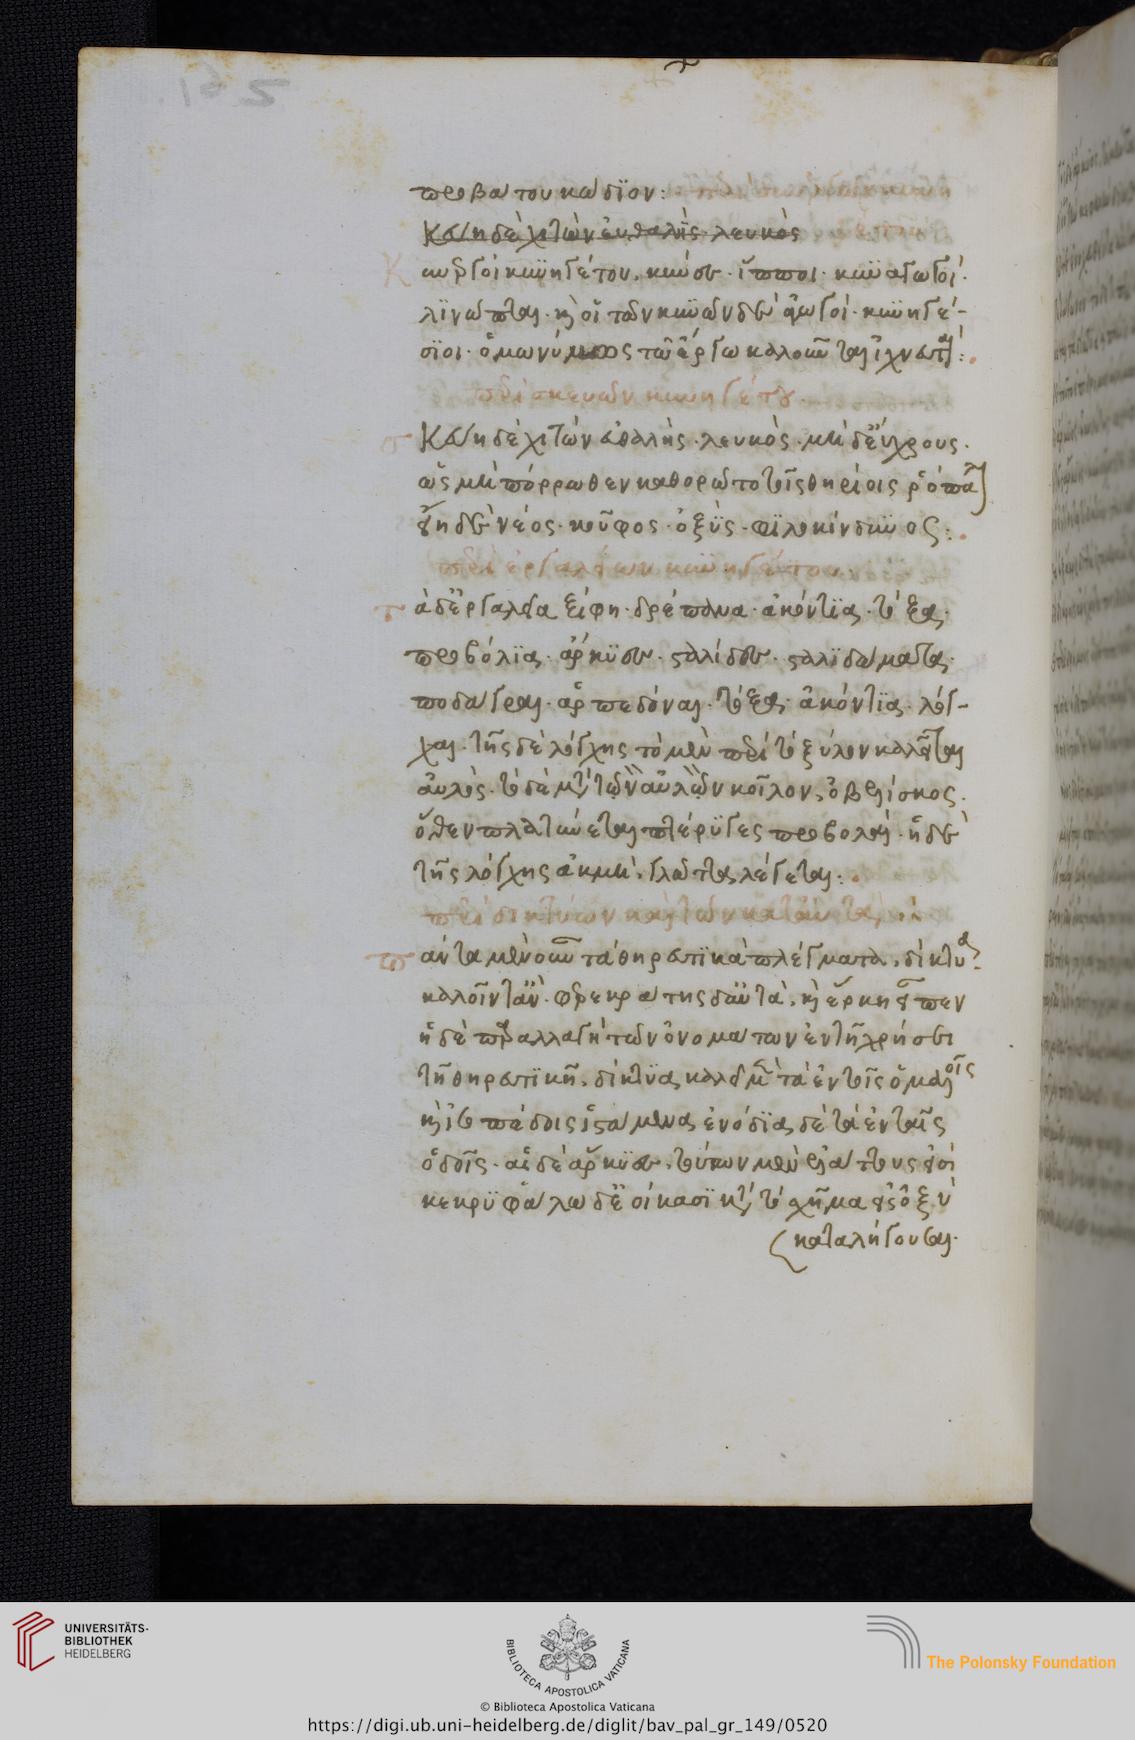 προβάτου κώδιον:
καὶ ἡ δὲ χιτὼν εὐθαλὴς λευκὸς
Συνεργοὶ κυνηγέτου. κύνες. ἵπποι. κυναγωγοί.
λινόπται. καὶ οἱ τῶν κυνῶν δὲ ἀγωγοί. κυνηγέ-
σιοι. ὁμωνύμως τῶ ἔργω καλοῦνται ἰχνευταί:
περὶ σκευῶν κυνηγέτου.
σκευὴ δὲ χιτὼν εὐθαλὴς. λευκὸς. μὴ δὲ εὔχρους.
ὡς μὴ πόρρωθεν καθορῶτο τοῖς θηρίοις ῥόπαλον
ἔστω δὲ νέος. κοῦφος. ὀξὺς. φιλοκίνδυνος:
περὶ ἐργαλείων κυνηγέτου.
τὰ δὲ ἐργαλεῖα ξίφη. δρέπανα. ἀκόντια. τόξα.
προβόλια. ἄρκυες. σταλίδες. σταλιδώματα.
ποδάγραι. ἁρπεδόναι. τόξα. ἀκόντια. λόγ-
χαι. τῆς δὲ λόγχης τὸ μὲν περὶ τὸ ξύλον καλεῖται
αὐλὸς. τὸ δὲ μετὰ τὸν αὐλὸν κοῖλον, ὀβελίσκος.
ὅθεν πλατύνεται πτέρυγες προβολαὶ. ἡ δὲ
τῆς λόγχης ἀκμὴ, γλῶττα λέγεται:
περὶ δικτύων καὶ τῶν κατὰ ταῦτα
πάντα μὲν οὖν τὰ θηρευτικὰ πλέγματα, δίκτυα
καλοῖντ' ἄν. Φερεκράτης δ' αὐτὰ, καὶ ἕρκη εἶπεν
ἡ δὲ παραλλαγὴ τῶν ὀνομάτων ἐν τῆ χρήσει
τῆ θηρευτικῆ. δίκτυα καλοῦμεν τὰ ἐν τοῖς ὁμαλοῖς
καὶ ἰσοπέδοις ἱστάμενα ἐνόδια δὲ τὰ ἐν ταῖς
ὁδοῖς. αἱ δὲ ἄρκυες, τούτων μὲν ἐλάττους εἰσὶ
κεκρυφάλω δὲ ἐοίκασι κατὰ τὸ σχῆμα εἰς ὀξὺ
καταλήγουσαι.
UNIVERSITÄTS-
BIBLIOTHEK
HEIDELBERG
BIBLIOTECA APOSTOLICA VATICANA
The Polonsky Foundation
© Biblioteca Apostolica Vaticana
https://digi.ub.uni-heidelberg.de/diglit/bav_pal_gr_149/0520